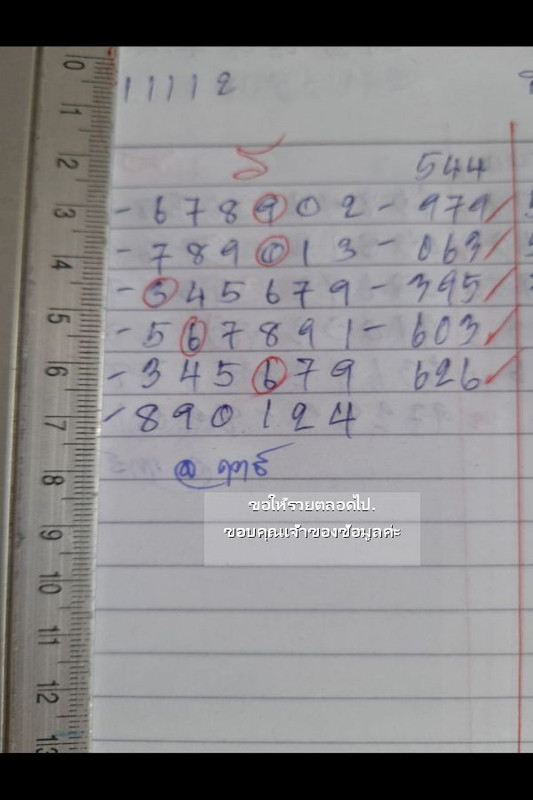 11112
544
- 6 7 8 9 0 2 - 979
- 7 8 9 0 1 3 - 063
- 3 4 5 6 7 9 - 395
- 5 6 7 8 9 1 - 603
- 3 4 5 6 7 9 626
- 8 9 0 1 2 4
ขอให้รวยตลอดไป.
ขอบคุณเจ้าของข้อมูลค่ะ
0 1 2 3 4 5 6 7 8 9 10 11 12 13